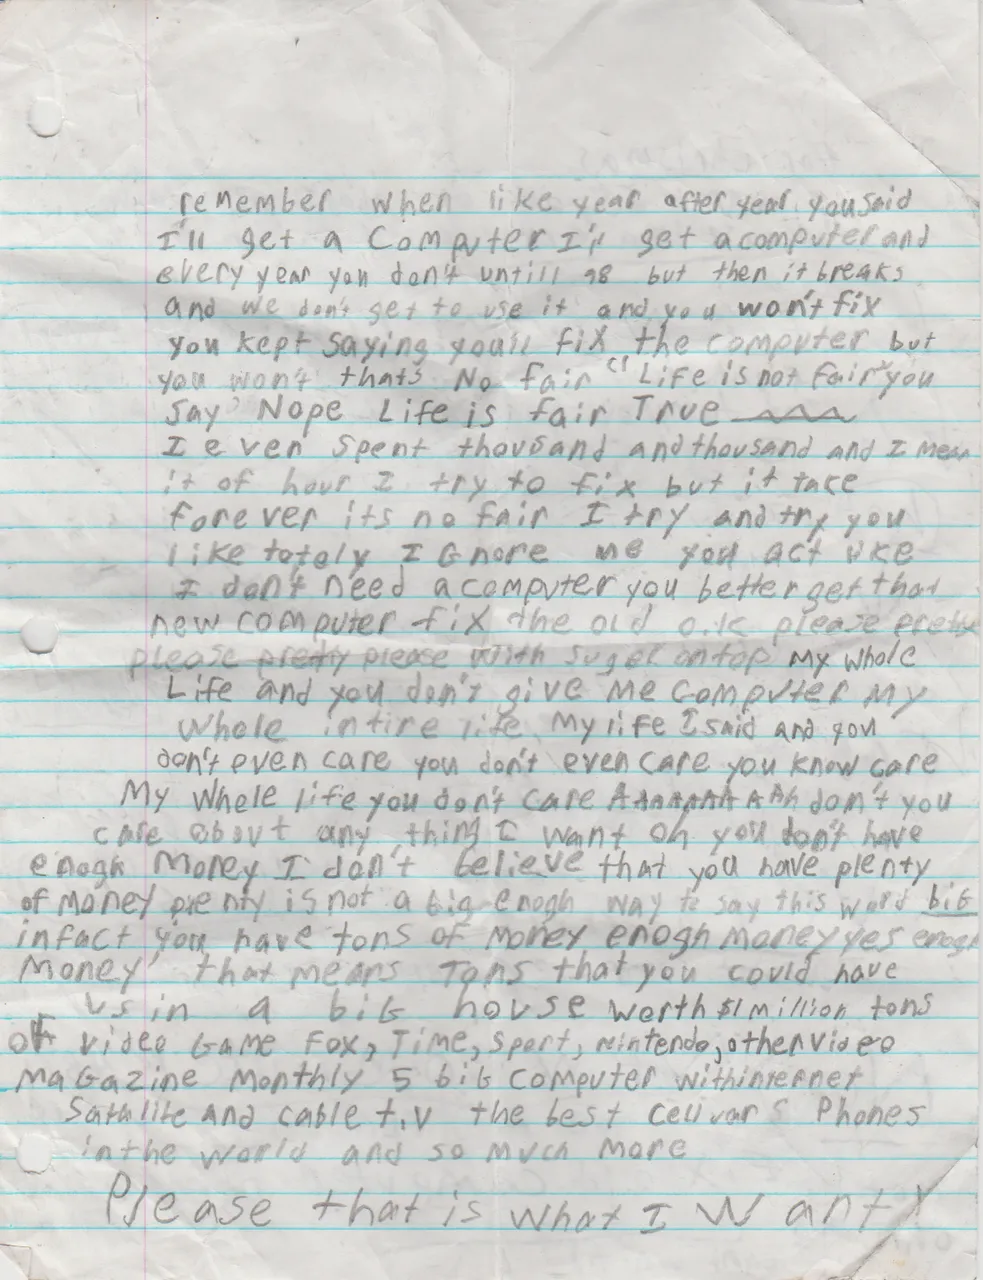 remember when like year after year you said
I'll get a Computer I'll get a computer and
every year you don't untill 98 but then it breaks
and we don't get to use it and you won't fix
you kept saying you'll fix the computer but
you won't that's No fair "Life is not fair" you
say Nope Life is fair True
I even spent thousand and thousand and I mean
it of hour I try to fix but it take
forever its no fair I try and try you
like totaly I Gnore me you act like
I don't need a computer you better get that
new computer fix the old o.k please pretty
please pretty please with suger on top My whole
Life and you don't give me computer My
whole intire life My life I said and you
don't even care you don't even care you know care
My Whole life you don't care AAAAAAAAAh don't you
care about any thing I want oh you don't have
enogh Money I don't believe that you have plenty
of money plenty is not a big enogh way to say this word big
infact you have tons of money enogh money yes enogh
Money that means Tons that you could have
us in a big house worth $1 million tons
of video Game Fox, Time, Sport, Nintendo, other video
Magazine Monthly 5 big computer with internet
Sathlite and cable t.v the best celluars Phones
in the world and so much more
Please that is what I want!